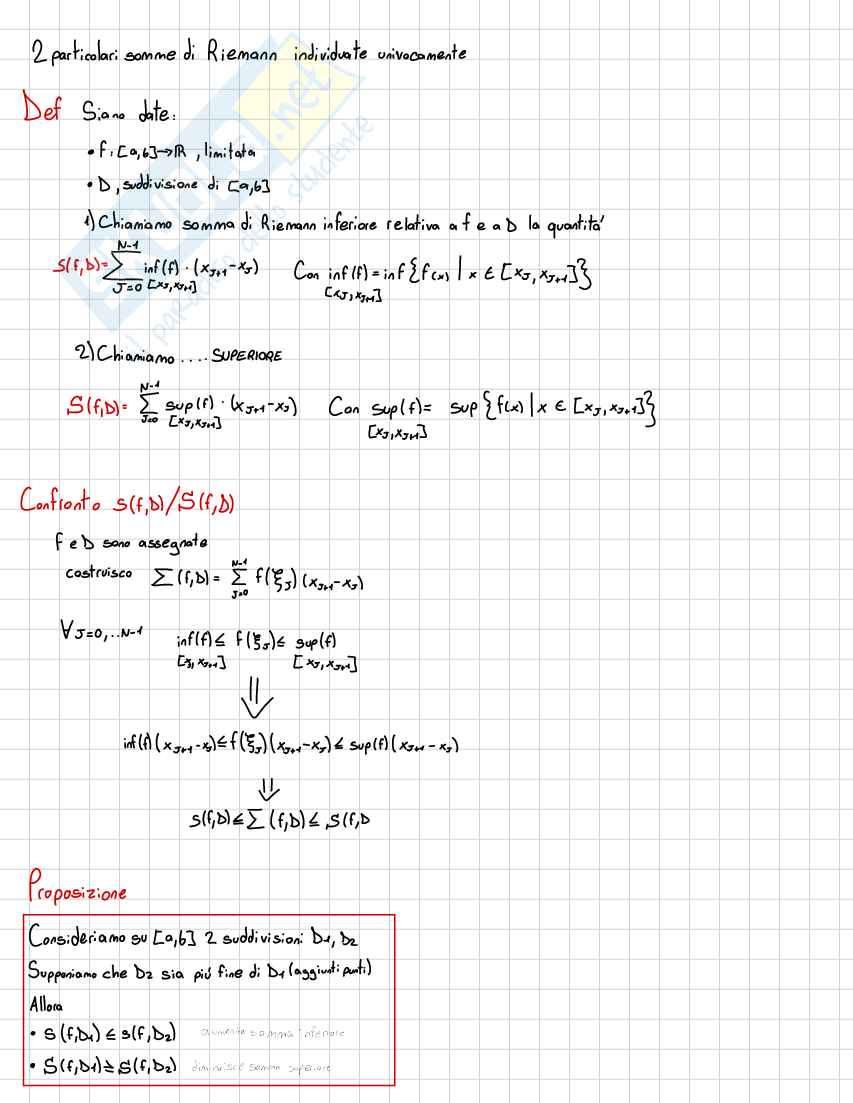 2 particolari somme di Riemann individuate univocamente
Def Siano date:
• f: [a,b]→ℝ, limitata
• D, suddivisione di [a,b]
1) Chiamiamo somma di Riemann inferiore relativa a f e a D la quantità
s(f,D)= ∑_{J=0}^{N-1} inf(f)_{[x_J,x_{J+1}]} · (x_{J+1}-x_J) Con inf(f)_{[x_J,x_{J+1}]} = inf{f(x) | x ∈ [x_J, x_{J+1}]}
2) Chiamiamo .... SUPERIORE
S(f,D)= ∑_{J=0}^{N-1} sup(f)_{[x_J,x_{J+1}]} · (x_{J+1}-x_J) Con sup(f)_{[x_J,x_{J+1}]} = sup{f(x) | x ∈ [x_J, x_{J+1}]}
Confronto s(f,D)/S(f,D)
f e D sono assegnate
costruisco ∑(f,D) = ∑_{J=0}^{N-1} f(ξ_J)(x_{J+1}-x_J)
∀J=0,..N-1 inf(f)_{[x_J,x_{J+1}]} ≤ f(ξ_J) ≤ sup(f)_{[x_J,x_{J+1}]}
⇓
inf(f)(x_{J+1}-x_J) ≤ f(ξ_J)(x_{J+1}-x_J) ≤ sup(f)(x_{J+1}-x_J)
⇓
s(f,D) ≤ ∑(f,D) ≤ S(f,D
Proposizione
Consideriamo su [a,b] 2 suddivisioni D1, D2
Supponiamo che D2 sia più fine di D1 (aggiunti punti)
Allora
• s(f,D1) ≤ s(f,D2) aumenta somma inferiore
• S(f,D1) ≥ S(f,D2) diminuisce somma superiore
.net
il paradiso dello studente